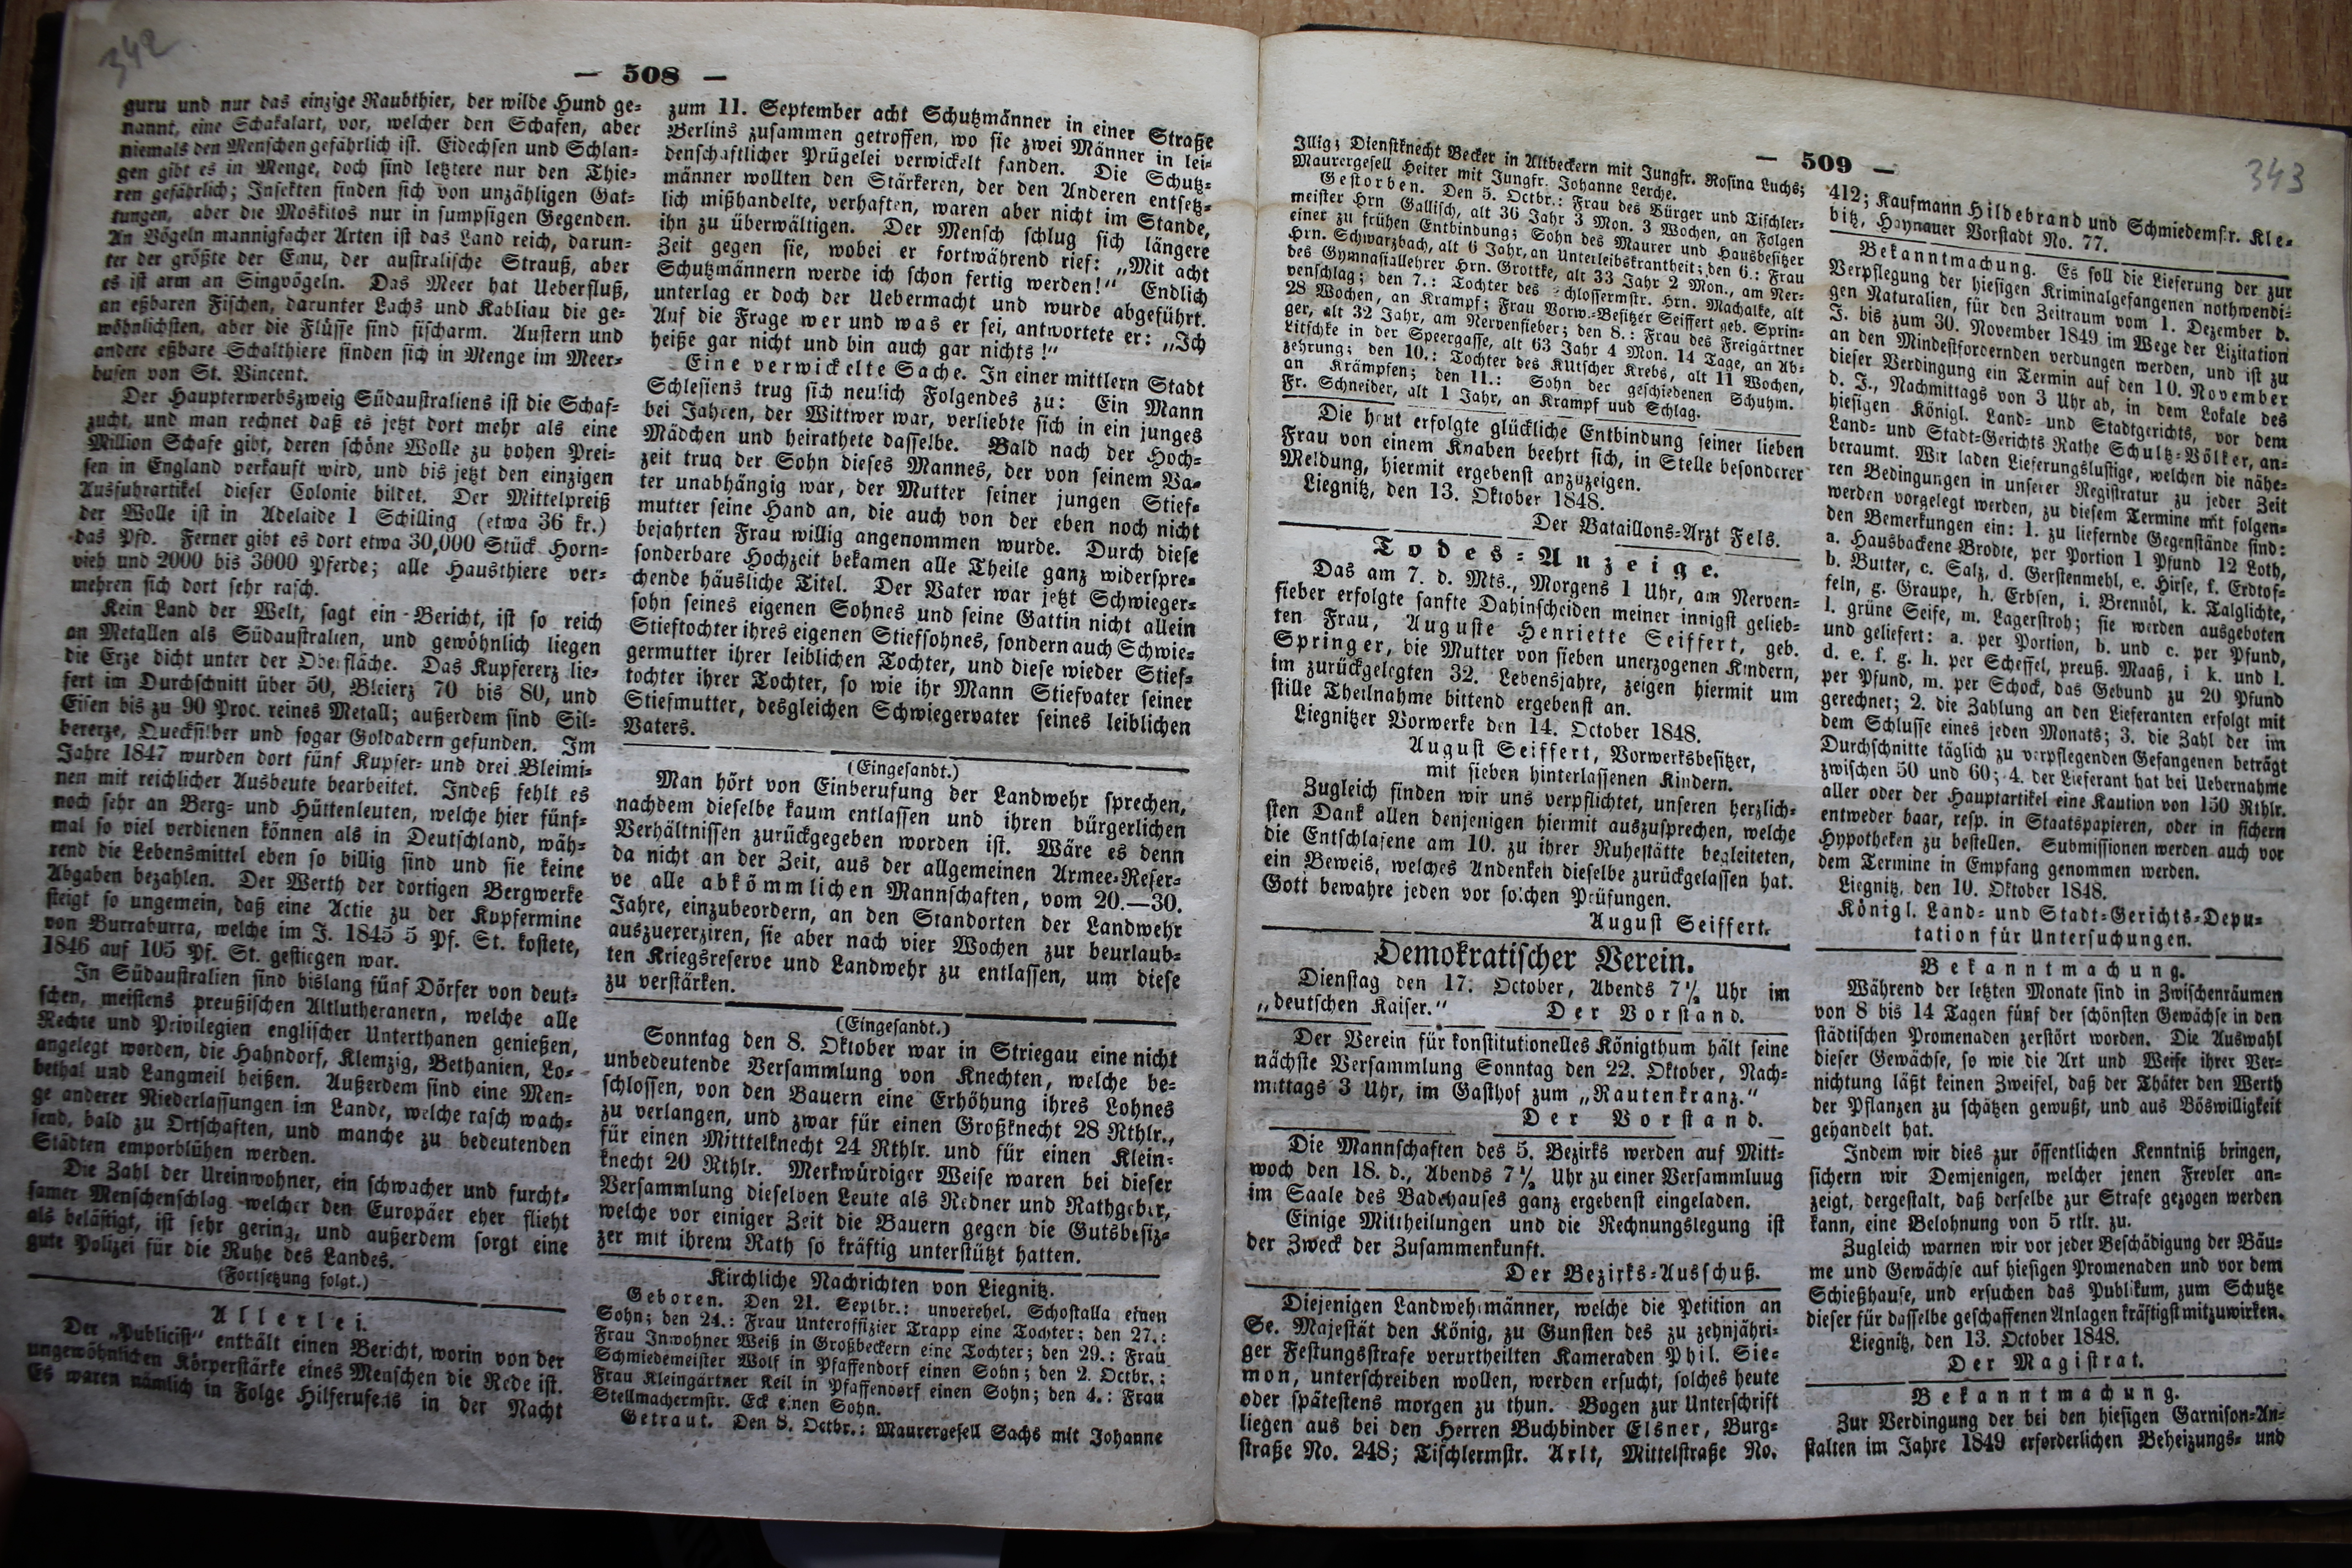 342
— 508 —
guru und nur das einzige Raubthier, der wilde Hund ge=
nannt, eine Schakalart, vor, welcher den Schafen, aber
niemals den Menschen gefährlich ist. Eidechsen und Schlan=
gen gibt es in Menge, doch sind letztere nur den Thie=
ren gefährlich; Insekten finden sich von unzähligen Gat=
tungen, aber die Moskitos nur in sumpfigen Gegenden.
An Vögeln mannigfacher Arten ist das Land reich, darun=
ter der größte der Emu, der australische Strauß, aber
es ist arm an Singvögeln. Das Meer hat Ueberfluß,
an eßbaren Fischen, darunter Lachs und Kabliau die ge=
wöhnlichsten, aber die Flüsse sind fischarm. Austern und
andere eßbare Schalthiere finden sich in Menge im Meer=
busen von St. Vincent.
Der Haupterwerbszweig Südaustraliens ist die Schaf=
zucht, und man rechnet daß es jetzt dort mehr als eine
Million Schafe gibt, deren schöne Wolle zu hohen Prei=
sen in England verkauft wird, und bis jetzt den einzigen
Ausfuhrartikel dieser Colonie bildet. Der Mittelpreiß
der Wolle ist in Adelaide 1 Schilling (etwa 36 kr.)
das Pfd. Ferner gibt es dort etwa 30,000 Stück Horn=
vieh und 2000 bis 3000 Pferde; alle Hausthiere ver=
mehren sich dort sehr rasch.
Kein Land der Welt, sagt ein Bericht, ist so reich
an Metallen als Südaustralien, und gewöhnlich liegen
die Erze dicht unter der Oberfläche. Das Kupfererz lie=
fert im Durchschnitt über 50, Bleierz 70 bis 80, und
Eisen bis zu 90 Proc. reines Metall; außerdem sind Sil=
bererze, Quecksilber und sogar Goldadern gefunden. Im
Jahre 1847 wurden dort fünf Kupfer= und drei Bleimi=
nen mit reichlicher Ausbeute bearbeitet. Indeß fehlt es
noch sehr an Berg= und Hüttenleuten, welche hier fünf=
mal so viel verdienen können als in Deutschland, wäh=
rend die Lebensmittel eben so billig sind und sie keine
Abgaben bezahlen. Der Werth der dortigen Bergwerke
steigt so ungemein, daß eine Actie zu der Kupfermine
von Burraburra, welche im J. 1845 5 Pf. St. kostete,
1846 auf 105 Pf. St. gestiegen war.
In Südaustralien sind bislang fünf Dörfer von deut=
schen, meistens preußischen Altlutheranern, welche alle
Rechte und Privilegien englischer Unterthanen genießen,
angelegt worden, die Hahndorf, Klemzig, Bethanien, Lo=
bethal und Langmeil heißen. Außerdem sind eine Men=
ge anderer Niederlassungen im Lande, welche rasch wach=
send, bald zu Ortschaften, und manche zu bedeutenden
Städten emporblühen werden.
Die Zahl der Ureinwohner, ein schwacher und furcht=
samer Menschenschlag welcher den Europäer eher flieht
als belästigt, ist sehr gering, und außerdem sorgt eine
gute Polizei für die Ruhe des Landes.
(Fortsetzung folgt.)
Allerlei.
Der „Publicist“ enthält einen Bericht, worin von der
ungewöhnlichen Körperstärke eines Menschen die Rede ist.
Es waren nämlich in Folge Hilferufens in der Nacht
zum 11. September acht Schutzmänner in einer Straße
Berlins zusammen getroffen, wo sie zwei Männer in lei=
denschaftlicher Prügelei verwickelt fanden. Die Schutz=
männer wollten den Stärkeren, der den Anderen entsetz=
lich mißhandelte, verhaften, waren aber nicht im Stande,
ihn zu überwältigen. Der Mensch schlug sich längere
Zeit gegen sie, wobei er fortwährend rief: „Mit acht
Schutzmännern werde ich schon fertig werden!“ Endlich
unterlag er doch der Uebermacht und wurde abgeführt.
Auf die Frage wer und was er sei, antwortete er: „Ich
heiße gar nicht und bin auch gar nichts!“
Eine verwickelte Sache. In einer mittlern Stadt
Schlesiens trug sich neulich Folgendes zu: Ein Mann
bei Jahren, der Wittwer war, verliebte sich in ein junges
Mädchen und heirathete dasselbe. Bald nach der Hoch=
zeit trug der Sohn dieses Mannes, der von seinem Va=
ter unabhängig war, der Mutter seiner jungen Stief=
mutter seine Hand an, die auch von der eben noch nicht
bejahrten Frau willig angenommen wurde. Durch diese
sonderbare Hochzeit bekamen alle Theile ganz widerspre=
chende häusliche Titel. Der Vater war jetzt Schwieger=
sohn seines eigenen Sohnes und seine Gattin nicht allein
Stieftochter ihres eigenen Stiefsohnes, sondern auch Schwie=
germutter ihrer leiblichen Tochter, und diese wieder Stief=
tochter ihrer Tochter, so wie ihr Mann Stiefvater seiner
Stiefmutter, desgleichen Schwiegervater seines leiblichen
Vaters.
(Eingesandt.)
Man hört von Einberufung der Landwehr sprechen,
nachdem dieselbe kaum entlassen und ihren bürgerlichen
Verhältnissen zurückgegeben worden ist. Wäre es denn
da nicht an der Zeit, aus der allgemeinen Armee=Reser=
ve alle abkömmlichen Mannschaften, vom 20.—30.
Jahre, einzubeordern, an den Standorten der Landwehr
auszuexerziren, sie aber nach vier Wochen zur beurlaub=
ten Kriegsreserve und Landwehr zu entlassen, um diese
zu verstärken.
(Eingesandt.)
Sonntag den 8. Oktober war in Striegau eine nicht
unbedeutende Versammlung von Knechten, welche be=
schlossen, von den Bauern eine Erhöhung ihres Lohnes
zu verlangen, und zwar für einen Großknecht 28 Rthlr.,
für einen Mitttelknecht 24 Rthlr. und für einen Klein=
knecht 20 Rthlr. Merkwürdiger Weise waren bei dieser
Versammlung dieselben Leute als Redner und Rathgeber,
welche vor einiger Zeit die Bauern gegen die Gutsbesiz=
zer mit ihrem Rath so kräftig unterstützt hatten.
Kirchliche Nachrichten von Liegnitz.
Geboren. Den 21. Septbr.: unverehel. Schostalla einen
Sohn; den 24.: Frau Unteroffizier Trapp eine Tochter; den 27.:
Frau Inwohner Weiß in Großbeckern eine Tochter; den 29.: Frau
Schmiedemeister Wolf in Pfaffendorf einen Sohn; den 2. Octbr.:
Frau Kleingärtner Keil in Pfaffendorf einen Sohn; den 4.: Frau
Stellmachermstr. Eck einen Sohn.
Getraut. Den 8. Octbr.: Maurergesell Sachs mit Johanne
— 509 —
343
Illig; Dienstknecht Becker in Altbeckern mit Jungfr. Rosina Luchs;
Maurergesell Heiter mit Jungfr. Johanne Lerche.
Gestorben. Den 5. Octbr.: Frau des Bürger und Tischler=
meister Hrn Gallisch, alt 36 Jahr 3 Mon. 3 Wochen, an Folgen
einer zu frühen Entbindung; Sohn des Maurer und Hausbesitzer
Hrn. Schwarzbach, alt 6 Jahr, an Unterleibskrankheit; den 6.: Frau
des Gymnasiallehrer Hrn. Grottke, alt 33 Jahr 2 Mon., am Ner=
venschlag; den 7.: Tochter des Schlossermstr. Hrn. Machalke, alt
28 Wochen, an Krampf; Frau Vorw.=Besitzer Seiffert geb. Sprin=
ger, alt 32 Jahr, am Nervenfieber; den 8.: Frau des Freigärtner
Litschke in der Speergasse, alt 63 Jahr 4 Mon. 14 Tage, an Ab=
zehrung; den 10.: Tochter des Kutscher Krebs, alt 11 Wochen,
an Krämpfen; den 11.: Sohn der geschiedenen Schuhm.
Fr. Schneider, alt 1 Jahr, an Krampf uud Schlag.
Die heut erfolgte glückliche Entbindung seiner lieben
Frau von einem Knaben beehrt sich, in Stelle besonderer
Meldung, hiermit ergebenst anzuzeigen.
Liegnitz, den 13. Oktober 1848.
Der Bataillons=Arzt Fels.
Todes=Anzeige.
Das am 7. d. Mts., Morgens 1 Uhr, am Nerven=
fieber erfolgte sanfte Dahinscheiden meiner innigst gelieb=
ten Frau, Auguste Henriette Seiffert, geb.
Springer, die Mutter von sieben unerzogenen Kindern,
im zurückgelegten 32. Lebensjahre, zeigen hiermit um
stille Theilnahme bittend ergebenst an.
Liegnitzer Vorwerke den 14. October 1848.
August Seiffert, Vorwerksbesitzer,
mit sieben hinterlassenen Kindern.
Zugleich finden wir uns verpflichtet, unseren herzlich=
sten Dank allen denjenigen hiermit auszusprechen, welche
die Entschlafene am 10. zu ihrer Ruhestätte begleiteten,
ein Beweis, welches Andenken dieselbe zurückgelassen hat.
Gott bewahre jeden vor solchen Prüfungen.
August Seiffert.
Demokratischer Verein.
Dienstag den 17. October, Abends 7½ Uhr im
„deutschen Kaiser.“ Der Vorstand.
Der Verein für konstitutionelles Königthum hält seine
nächste Versammlung Sonntag den 22. Oktober, Nach=
mittags 3 Uhr, im Gasthof zum „Rautenkranz.“
Der Vorstand.
Die Mannschaften des 5. Bezirks werden auf Mitt=
woch den 18. d., Abends 7½ Uhr zu einer Versammluug
im Saale des Badehauses ganz ergebenst eingeladen.
Einige Mittheilungen und die Rechnungslegung ist
der Zweck der Zusammenkunft.
Der Bezirks=Ausschuß.
Diejenigen Landwehrmänner, welche die Petition an
Se. Majestät den König, zu Gunsten des zu zehnjähri=
ger Festungsstrafe verurtheilten Kameraden Phil. Sie=
mon, unterschreiben wollen, werden ersucht, solches heute
oder spätestens morgen zu thun. Bogen zur Unterschrift
liegen aus bei den Herren Buchbinder Elsner, Burg=
straße No. 248; Tischlermstr. Arlt, Mittelstraße No.
412; Kaufmann Hildebrand und Schmiedemstr. Kle=
bitz, Haynauer Vorstadt No. 77.
Bekanntmachung. Es soll die Lieferung der zur
Verpflegung der hiesigen Kriminalgefangenen nothwendi=
gen Naturalien, für den Zeitraum vom 1. Dezember d.
J. bis zum 30. November 1849 im Wege der Lizitation
an den Mindestfordernden verdungen werden, und ist zu
dieser Verdingung ein Termin auf den 10. November
d. J., Nachmittags von 3 Uhr ab, in dem Lokale des
hiesigen Königl. Land= und Stadtgerichts, vor dem
Land= und Stadt=Gerichts Rathe Schultz=Völker, an=
beraumt. Wir laden Lieferungslustige, welchen die nähe=
ren Bedingungen in unserer Registratur zu jeder Zeit
werden vorgelegt werden, zu diesem Termine mit folgen=
den Bemerkungen ein: 1. zu liefernde Gegenstände sind:
a. Hausbackene Brodte, per Portion 1 Pfund 12 Loth,
b. Butter, c. Salz, d. Gerstenmehl, e. Hirse, f. Erdtof=
feln, g. Graupe, h. Erbsen, i. Brennöl, k. Talglichte,
l. grüne Seife, m. Lagerstroh; sie werden ausgeboten
und geliefert: a. per Portion, b. und c. per Pfund,
d. e. f. g. h. per Scheffel, preuß. Maaß, i k. und l.
per Pfund, m. per Schock, das Gebund zu 20 Pfund
gerechnet; 2. die Zahlung an den Lieferanten erfolgt mit
dem Schlusse eines jeden Monats; 3. die Zahl der im
Durchschnitte täglich zu verpflegenden Gefangenen beträgt
zwischen 50 und 60; 4. der Lieferant hat bei Uebernahme
aller oder der Hauptartikel eine Kaution von 150 Rthlr.
entweder baar, resp. in Staatspapieren, oder in sichern
Hypotheken zu bestellen. Submissionen werden auch vor
dem Termine in Empfang genommen werden.
Liegnitz, den 10. Oktober 1848.
Königl. Land= und Stadt=Gerichts=Depu=
tation für Untersuchungen.
Bekanntmachung.
Während der letzten Monate sind in Zwischenräumen
von 8 bis 14 Tagen fünf der schönsten Gewächse in den
städtischen Promenaden zerstört worden. Die Auswahl
dieser Gewächse, so wie die Art und Weise ihrer Ver=
nichtung läßt keinen Zweifel, daß der Thäter den Werth
der Pflanzen zu schätzen gewußt, und aus Böswilligkeit
gehandelt hat.
Indem wir dies zur öffentlichen Kenntniß bringen,
sichern wir Demjenigen, welcher jenen Frevler an=
zeigt, dergestalt, daß derselbe zur Strafe gezogen werden
kann, eine Belohnung von 5 rtlr. zu.
Zugleich warnen wir vor jeder Beschädigung der Bäu=
me und Gewächse auf hiesigen Promenaden und vor dem
Schießhause, und ersuchen das Publikum, zum Schutze
dieser für dasselbe geschaffenen Anlagen kräftigst mitzuwirken.
Liegnitz, den 13. October 1848.
Der Magistrat.
Bekanntmachung.
Zur Verdingung der bei den hiesigen Garnison=An=
stalten im Jahre 1849 erforderlichen Beheizungs= und